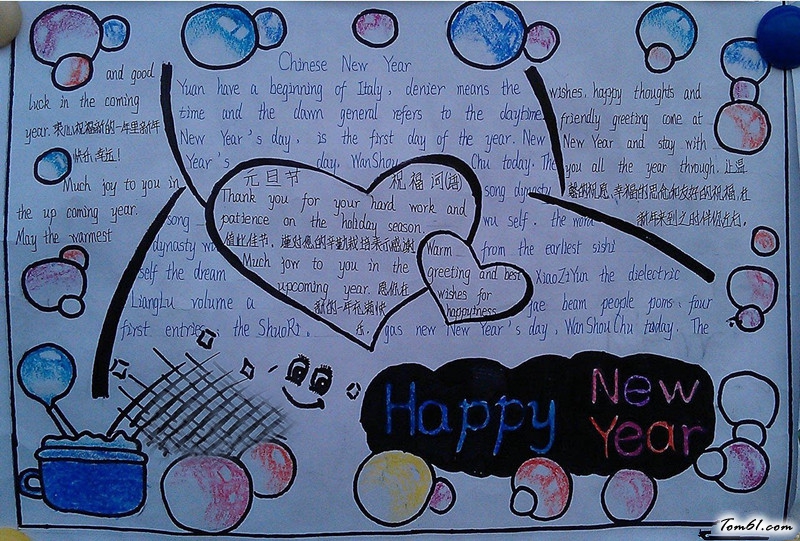 Chinese New Year
and good
luck in the coming
year. 衷心祝福新的一年里新年
快乐,幸运!
Much joy to you in
the up coming year.
May the warmest
Yuan have a beginning of Italy, denier means the
time and the dawn general refers to the daytime
New Year's day, is the first day of the year. New
Year's day, WanShou Chu today. The
song dynasty
song wu self. the word
dynasty wu from the earliest sishi
self the dream XiaoZiYun the dielectric
LiangLu volume a gae beam people pons: four
first entries: the ShuoRi, gas new New Year's day, WanShouChu today. The
wishes, happy thoughts and
friendly greeting come at
New Year and stay with
you all the year through. 让温
馨的祝愿、幸福的思念和友好的祝福,在
新年来到之际伴你左右,
元旦节 祝福词语
Thank you for your hard work and
patience on the holiday season.
值此佳节,谨对您的辛勤栽培表示感谢
Much jow to you in the
upcoming year. 愿你在
新的一年充满快
乐.
Warm
greeting and best
wishes for
happytness
Happy New
Year
Tom61.com